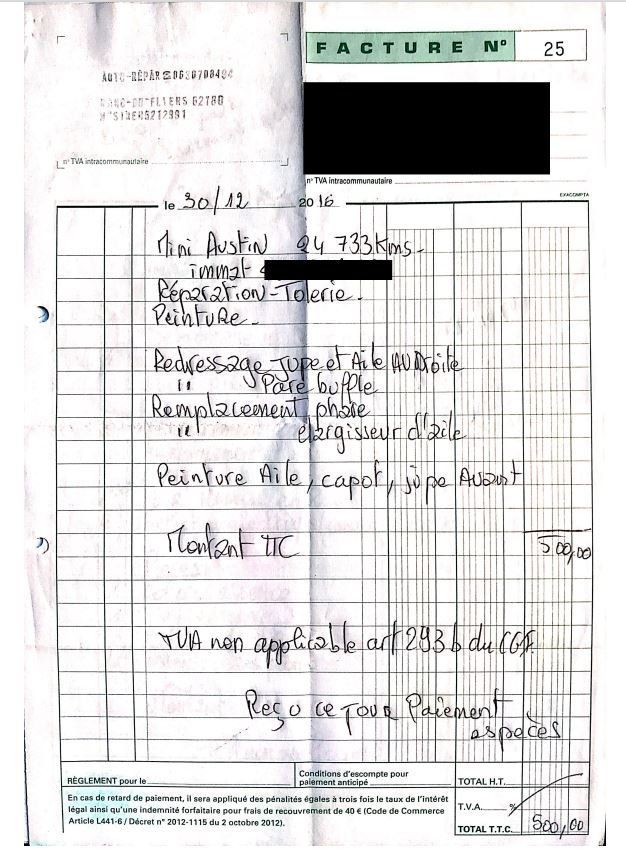 FACTURE N° 25
AUTO-RÉPAR ☎0630700484
RANG-DU-FLIERS 62180
n° TVA intracommunautaire
n° TVA intracommunautaire
EXACOMPTA
le 30/12 2016
Mini Austin 24 733 Kms-
immat
Réparation-Tolerie-
Peinture-
Redressage jupe et Aile AV Droite
" Pare buffle
Remplacement phare
" elargisseur d'aile
Peinture Aile, capot, jupe Avant
Montant TTC 500,00
TVA non applicable art 293 b du CGI.
Reçu ce jour Paiement
espècès
RÈGLEMENT pour le
Conditions d'escompte pour
paiement anticipé
TOTAL H.T.
En cas de retard de paiement, il sera appliqué des pénalités égales à trois fois le taux de l'intérêt
légal ainsi qu'une indemnité forfaitaire pour frais de recouvrement de 40 € (Code de Commerce
Article L441-6 / Décret n° 2012-1115 du 2 octobre 2012).
T.V.A. %
TOTAL T.T.C. 500,00